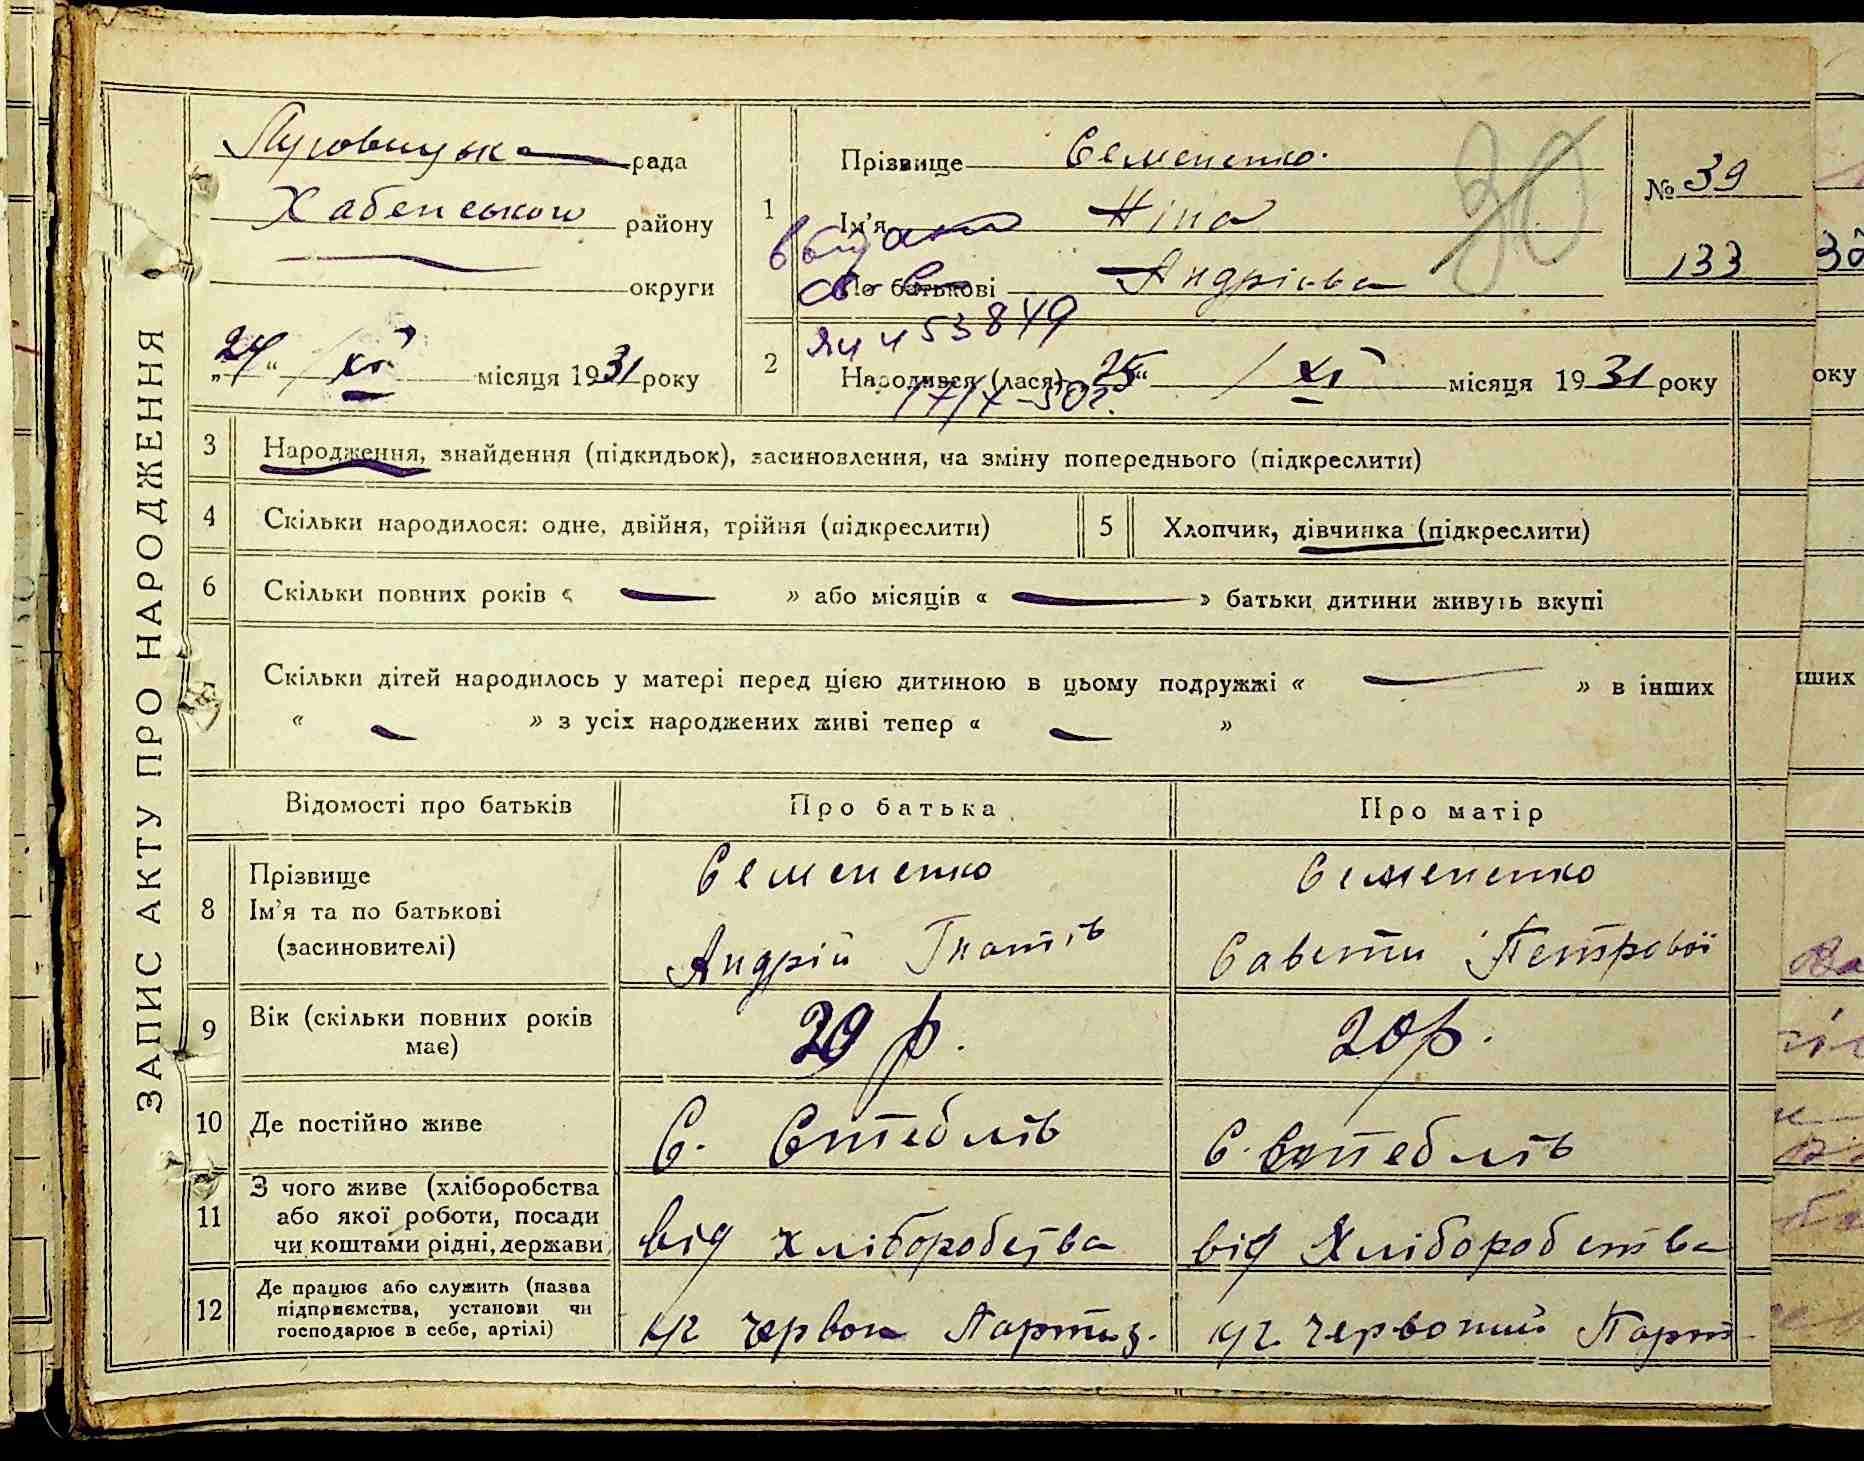 ЗАПИС АКТУ ПРО НАРОДЖЕННЯ
рада
Хабенського району
округи
„24“ / XI місяця 1931 року
1
Прізвище Семененко.
Ім'я Ніна
По батькові Андріівна
№ 39
133
30
2
Народився (лася) „25“ / XI місяця 1931 року
ЯЧ 453849
3 Народження, знайдення (підкидьок), засиновлення, на зміну попереднього (підкреслити)
4 Скільки народилося: одне, двійня, трійня (підкреслити)
5 Хлопчик, дівчинка (підкреслити)
6 Скільки повних років « — » або місяців « — » батьки дитини живуть вкупі
7 Скільки дітей народилось у матері перед цією дитиною в цьому подружжі « — » в інших
« — » з усіх народжених живі тепер « — »
Відомості про батьків
Про батька
Про матір
8 Прізвище
Ім'я та по батькові
(засиновителі)
Семененко
Андрій Гнатів
Семененко
Савети Петрової
9 Вік (скільки повних років
має)
29 р.
20 р.
10 Де постійно живе
С. Стеблів
С. Стеблів
11 З чого живе (хліборобства
або якої роботи, посади
чи коштами рідні, держави
від хліборобства
від Хліборобства
12 Де працює або служить (назва
підприємства, установи чи
господарює в себе, артілі)
к/г Червон Партиз.
к/г. Червоний Парт
оку
інших